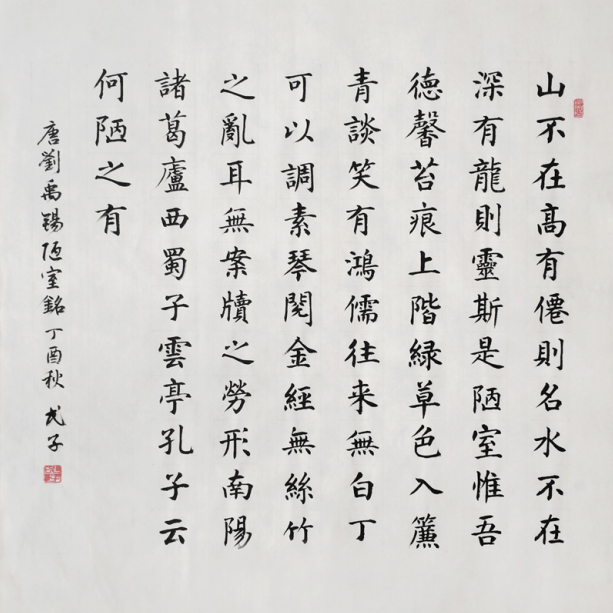 山不在高有僊則名水不在
深有龍則靈斯是陋室惟吾
德馨苔痕上階緑草色入簾
青談笑有鴻儒往来無白丁
可以調素琴閱金經無絲竹
之亂耳無案牘之勞形南陽
諸葛廬西蜀子雲亭孔子云
何陋之有
唐劉禹錫陋室銘丁酉秋弌子